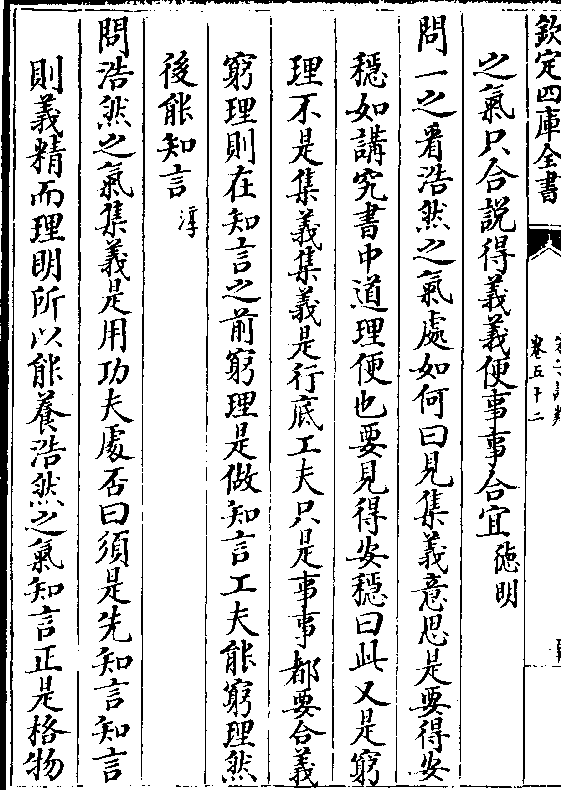 欽定四庫全書
卷五十二
之氣只合説得義義便事事合宜德明
問一之看浩然之氣處如何曰見集義意思是要得安
穏如講究書中道理便也要見得安穏曰此又是窮
理不是集義集義是行底工夫只是事事都要合義
窮理則在知言之前窮理是做知言工夫能窮理然
後能知言淳
問浩然之氣集義是用功夫處否曰須是先知言知言
則義精而理明所以能養浩然之氣知言正是格物